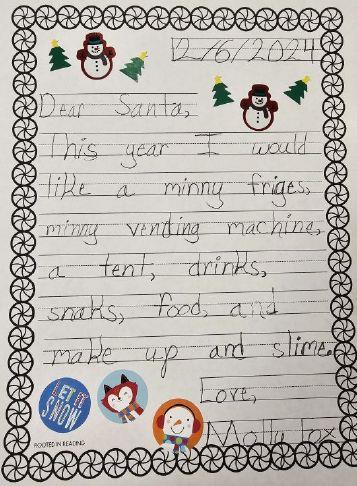 12/6/2024
Dear Santa,
This year I would
like a minny friges,
minny vending machine,
a tent, drinks,
snaks, food, and
make up and slime.
Love,
Molly Fox
LET IT
SNOW
ROOTED IN READING